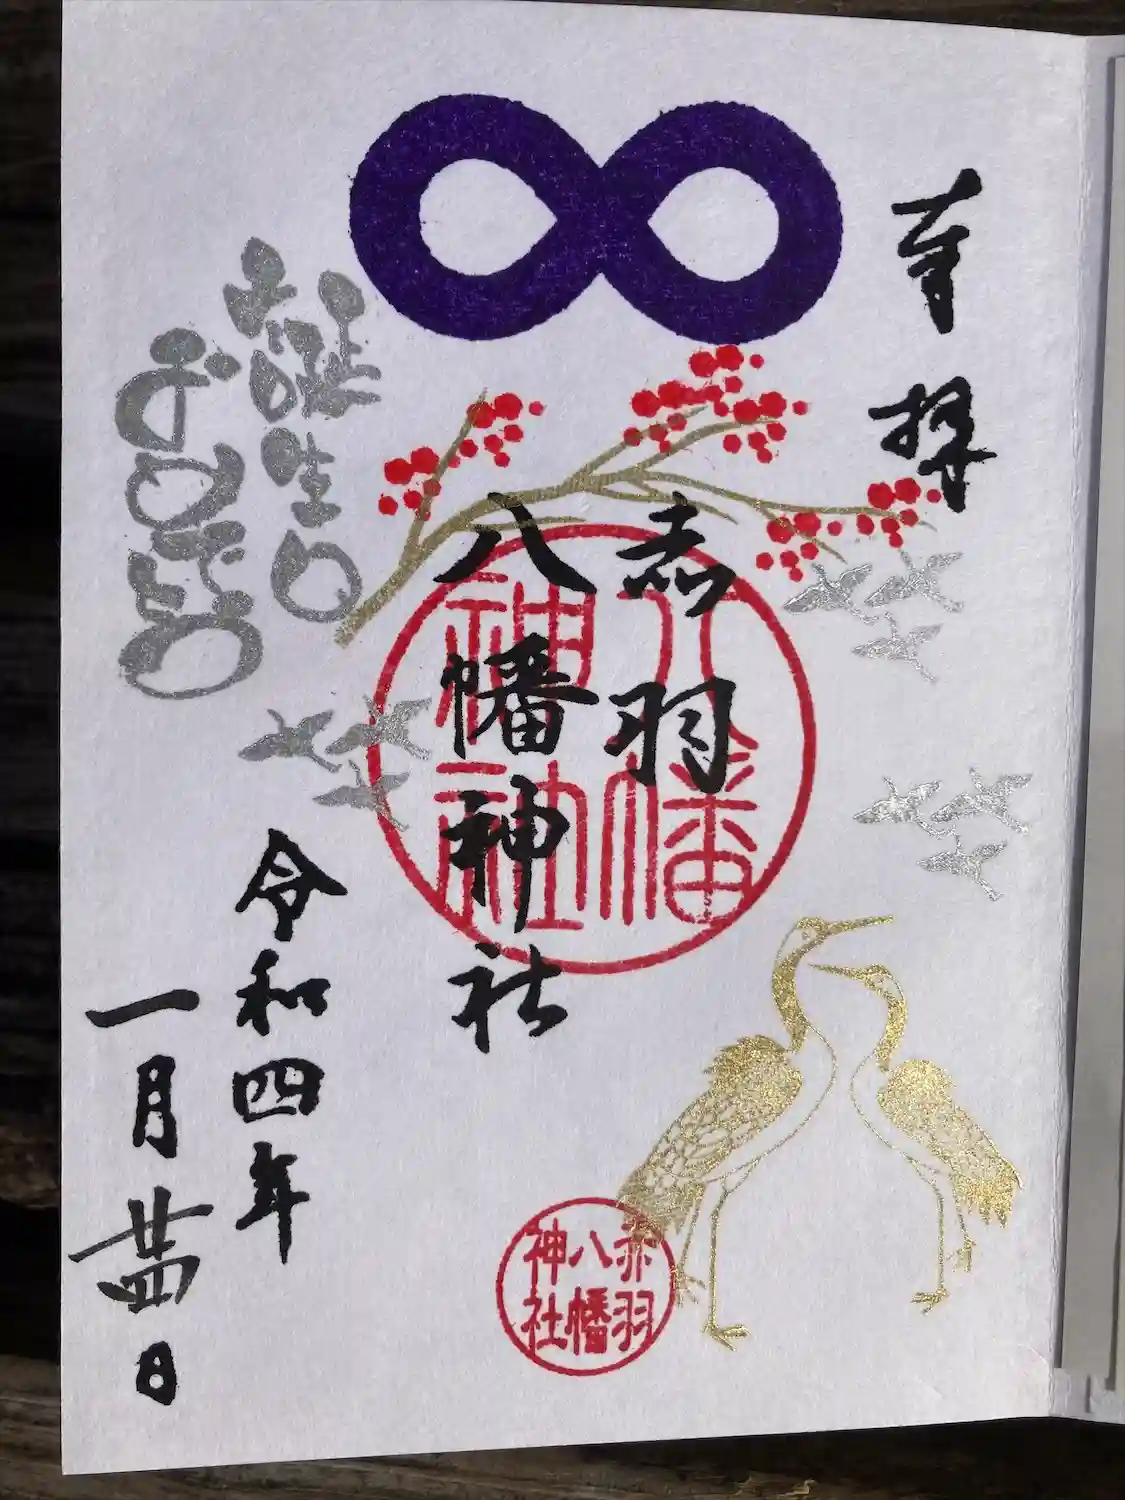 奉拝
赤羽
八幡神社
八幡
神社
令和四年
一月廿四日
赤羽
八幡
神社